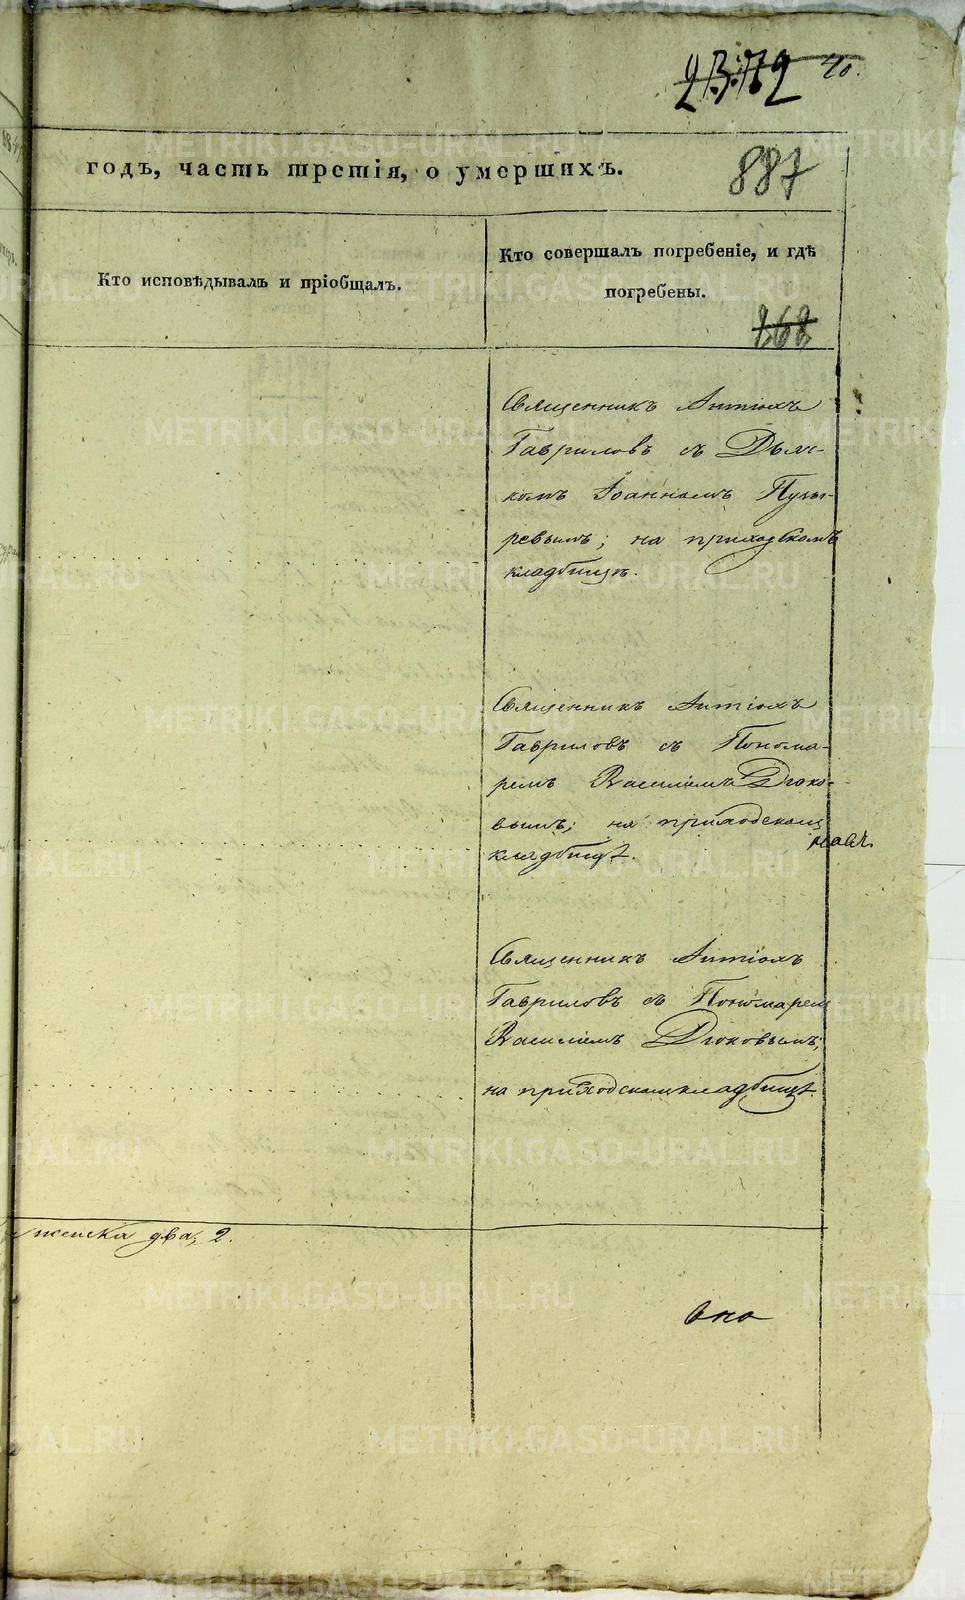 2372 40.
887
годъ, часть третія, о умершихъ.
Кто исповѣдывалъ и пріобщалъ.
Кто совершалъ погребеніе, и гдѣ
погребены.
868
Священникъ Антіохъ
Гавриловъ съ Дьяч-
комъ Іоанномъ Пузы-
ревымъ; на приходскомъ
кладбищѣ.
Священникъ Антіохъ
Гавриловъ съ Понома-
ремъ Василіемъ Дюко-
вымъ; на приходскомъ
кладбищѣ.
Священникъ Антіохъ
Гавриловъ съ Пономарем
Василіемъ Дюковымъ;
на приходскомъ кладбищѣ.
женска два, 2.
METRIKI.GASO-URAL.RU